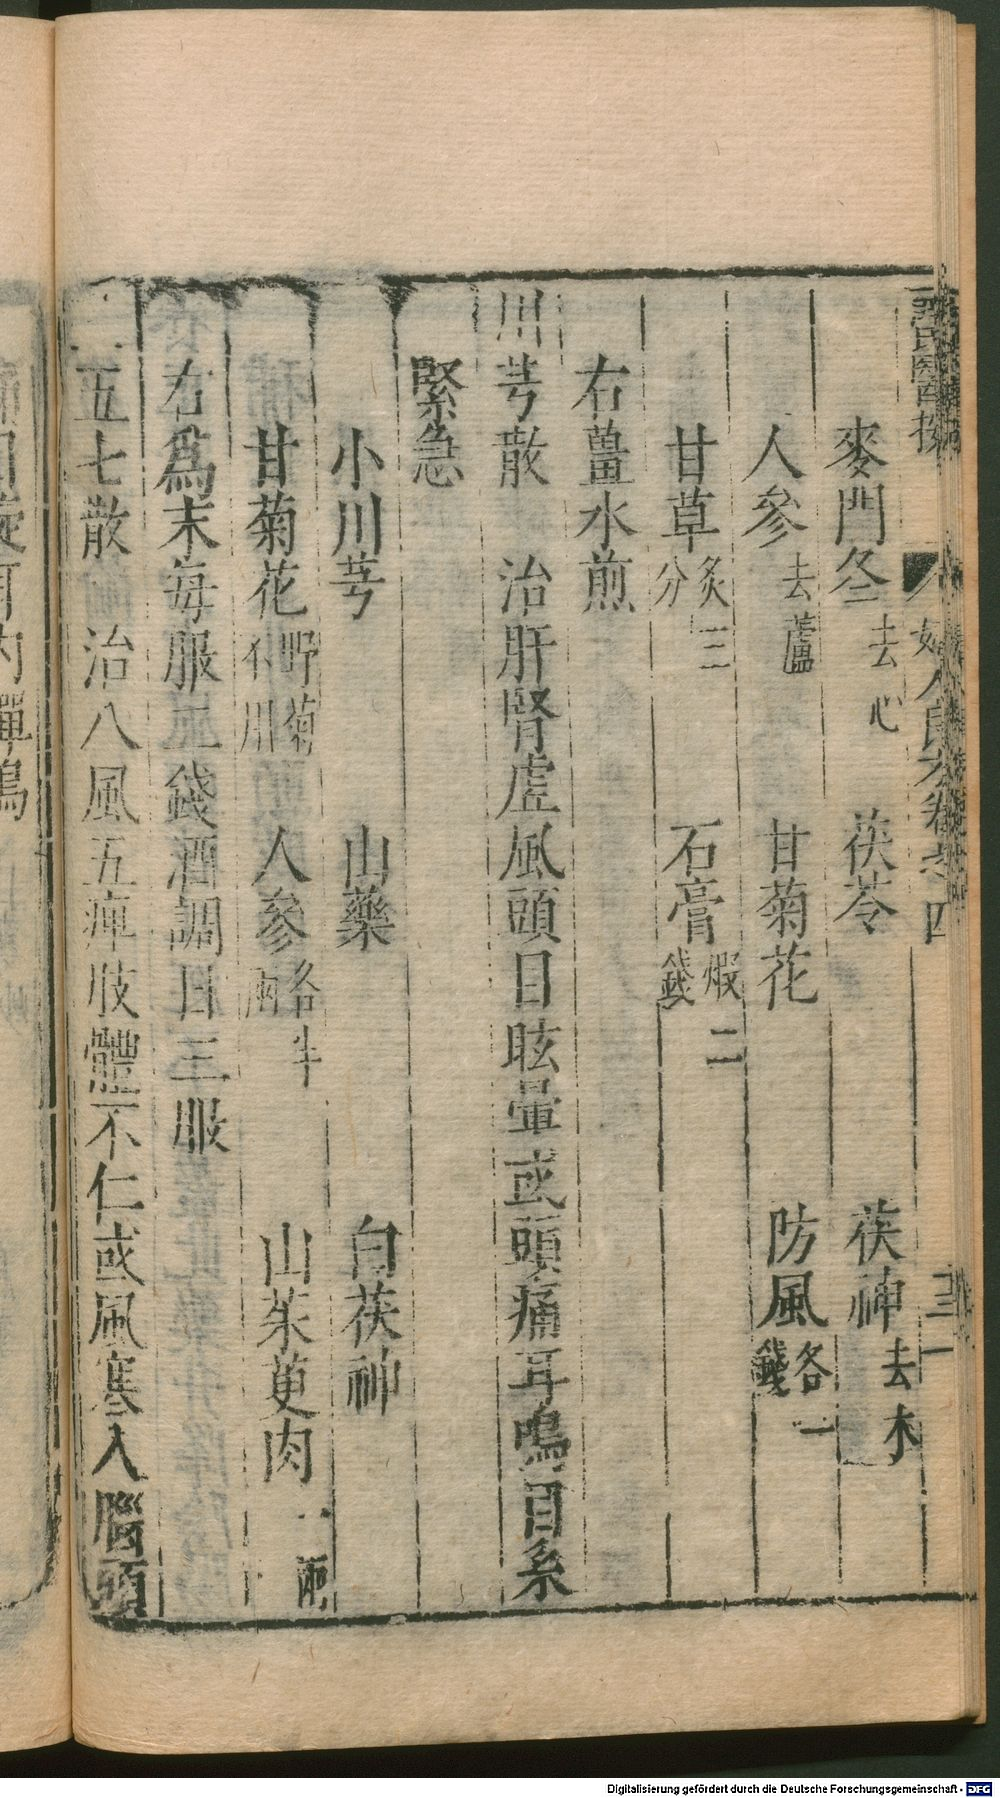 薛氏醫按
婦人良方卷之四
麥門冬去心 茯苓 茯神去木
人參去蘆 甘菊花 防風各一錢
甘草炙三分 石膏煅二錢
右薑水煎
川芎散 治肝腎虛風頭目眩暈或頭痛耳鳴目系
緊急
小川芎 山藥 白茯神
甘菊花野菊不用 人參各半兩 山茱萸肉一兩
右為末每服二錢酒調日三服
三五七散 治八風五痺肢體不仁或風寒入腦頭
Digitalisierung gefördert durch die Deutsche Forschungsgemeinschaft - DFG